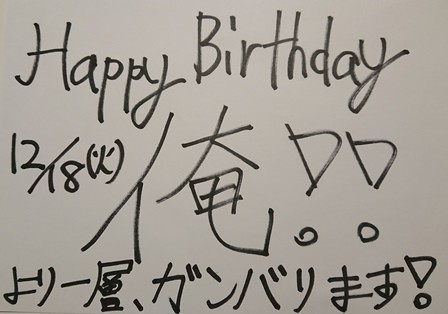 Happy Birthday
12/18(火) 俺!!
より一層、ガンバります!